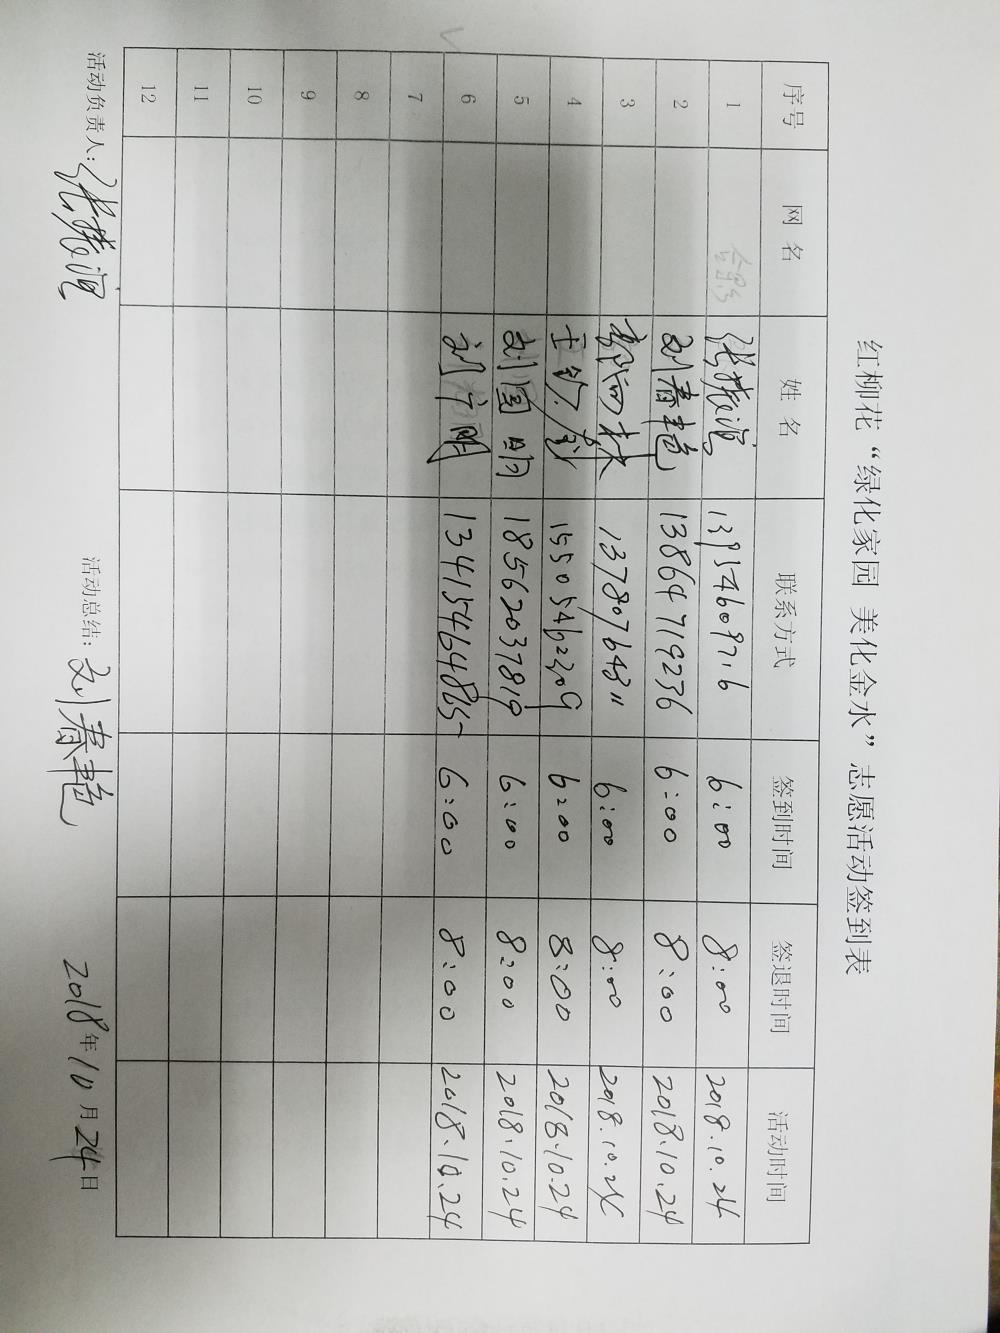 红柳花“绿化家园 美化金水”志愿活动签到表
序号 网名 姓名 联系方式 签到时间 签退时间 活动时间
1 张振 13954609716 6:00 8:00 2018.10.24
2 刘春艳 13864719236 6:00 8:00 2018.10.24
3 13780764811 6:00 8:00 2018.10.24
4 王 15505462209 6:00 8:00 2018.10.24
5 刘国明 18562037819 6:00 8:00 2018.10.24
6 刘 6:00 8:00 2018.10.24
7
8
9
10
11
12
活动负责人:张振 活动总结:刘春艳 2018年10月24日